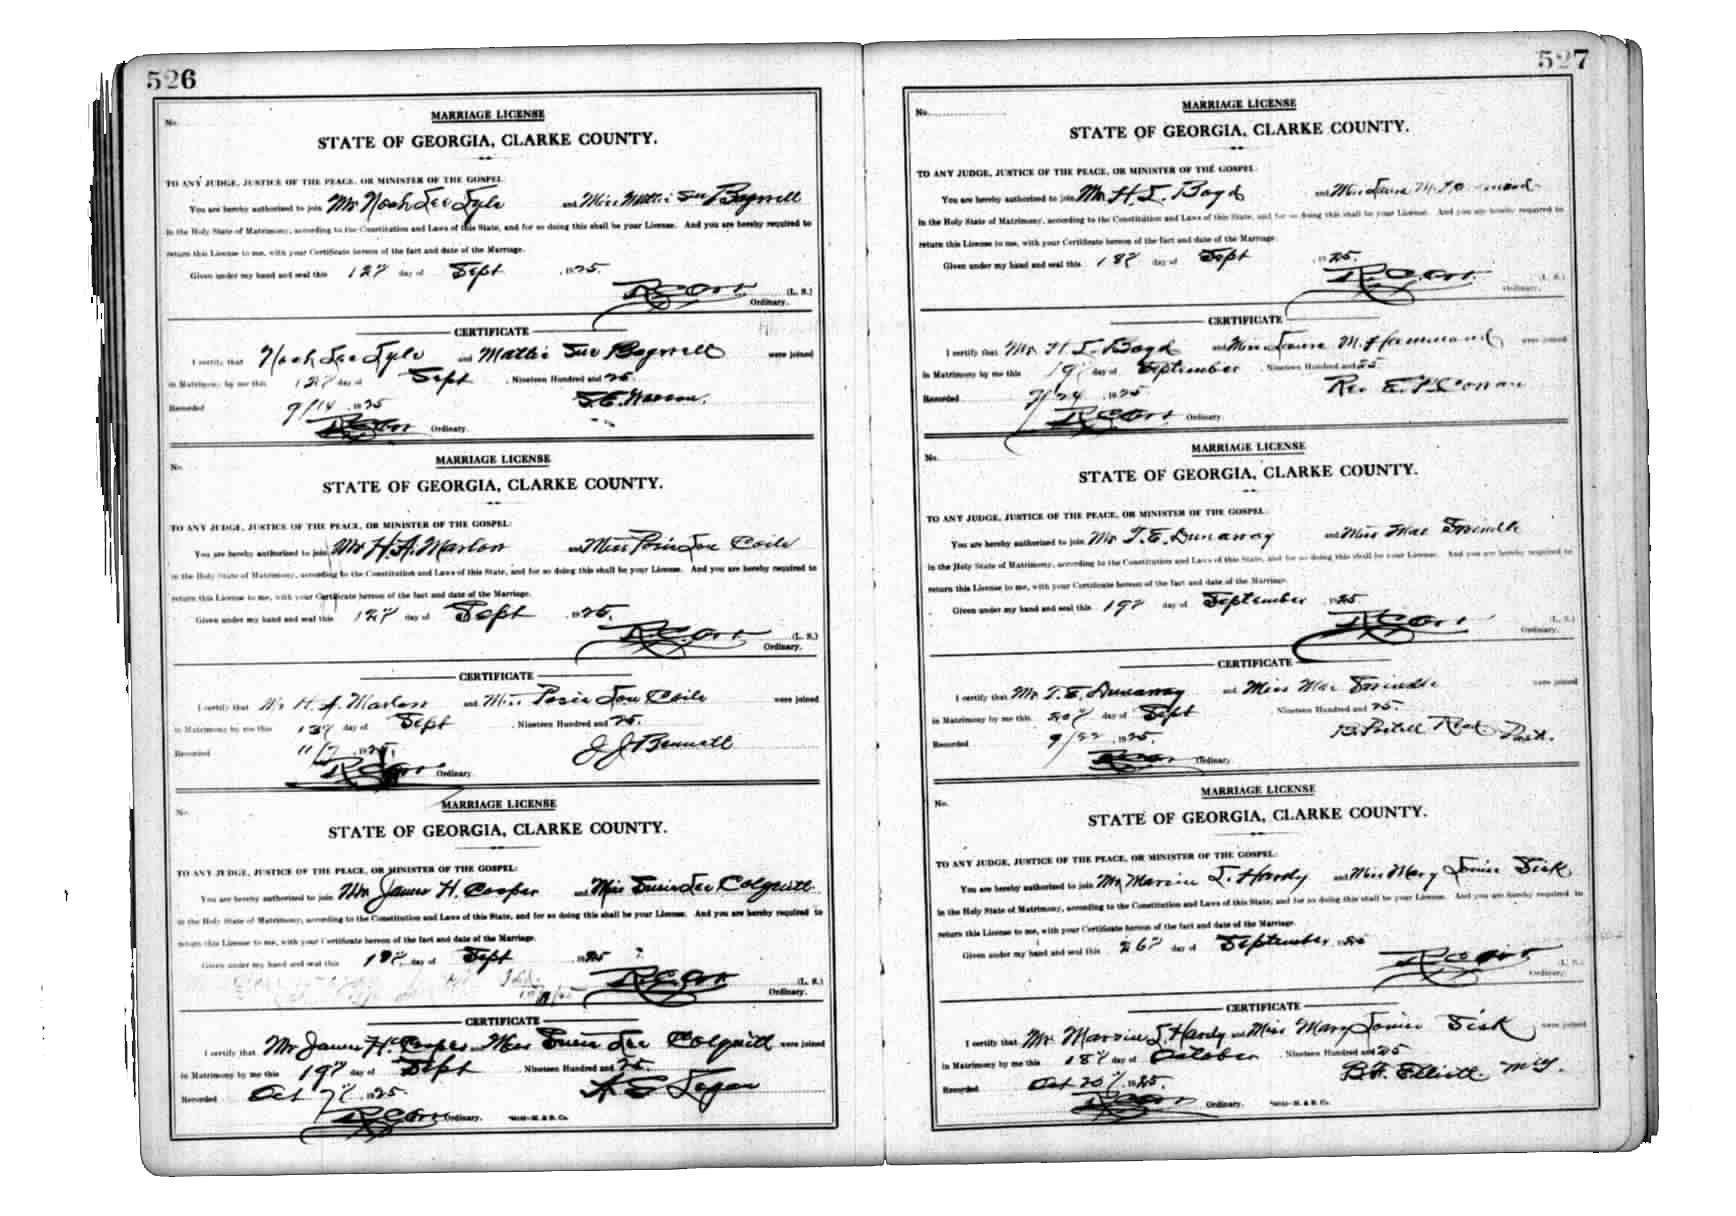 526
No.
MARRIAGE LICENSE
STATE OF GEORGIA, CLARKE COUNTY.
TO ANY JUDGE, JUSTICE OF THE PEACE, OR MINISTER OF THE GOSPEL:
You are hereby authorized to join Mr Noah Lee Lyle and Miss Mattie Sue Bagwell
in the Holy State of Matrimony, according to the Constitution and Laws of this State, and for so doing this shall be your License. And you are hereby required to
return this License to me, with your Certificate hereon of the fact and date of the Marriage.
Given under my hand and seal this 12 day of Sept 1925.
R C Orr (L. S.)
Ordinary.
CERTIFICATE
I certify that Noah Lee Lyle and Mattie Sue Bagwell were joined
in Matrimony by me this 12 day of Sept , Nineteen Hundred and 25.
Recorded 9/14 1925
R C Orr Ordinary.
No.
MARRIAGE LICENSE
STATE OF GEORGIA, CLARKE COUNTY.
TO ANY JUDGE, JUSTICE OF THE PEACE, OR MINISTER OF THE GOSPEL:
You are hereby authorized to join Mr H. A. Marlon and Miss Lou Coile
in the Holy State of Matrimony, according to the Constitution and Laws of this State, and for so doing this shall be your License. And you are hereby required to
return this License to me, with your Certificate hereon of the fact and date of the Marriage.
Given under my hand and seal this 12 day of Sept 1925.
R C Orr (L. S.)
Ordinary.
CERTIFICATE
I certify that Mr H. A. Marlon and Miss Lou Coile were joined
in Matrimony by me this 13 day of Sept , Nineteen Hundred and 25.
Recorded 11/7 1925. J J Bennett
R C Orr Ordinary.
No.
MARRIAGE LICENSE
STATE OF GEORGIA, CLARKE COUNTY.
TO ANY JUDGE, JUSTICE OF THE PEACE, OR MINISTER OF THE GOSPEL:
You are hereby authorized to join Mr James H. Cooper and Miss Susie Lee Colquitt
in the Holy State of Matrimony, according to the Constitution and Laws of this State, and for so doing this shall be your License. And you are hereby required to
return this License to me, with your Certificate hereon of the fact and date of the Marriage.
Given under my hand and seal this day of Sept 1925
R C Orr (L. S.)
Ordinary.
CERTIFICATE
I certify that Mr James H. Cooper Miss Susie Lee Colquitt were joined
in Matrimony by me this 19 day of Sept Nineteen Hundred and 25.
Recorded Oct 7 1925.
R C Orr Ordinary.
527
No.
MARRIAGE LICENSE
STATE OF GEORGIA, CLARKE COUNTY.
TO ANY JUDGE, JUSTICE OF THE PEACE, OR MINISTER OF THE GOSPEL:
You are hereby authorized to join Mr H. L. Boyd and Miss M.
in the Holy State of Matrimony, according to the Constitution and Laws of this State, and for so doing this shall be your License. And you are hereby required to
return this License to me, with your Certificate hereon of the fact and date of the Marriage.
Given under my hand and seal this 18 day of Sept 1925.
R C Orr (L. S.)
Ordinary.
CERTIFICATE
I certify that Mr. H. L. Boyd and Miss M. Hammond were joined
in Matrimony by me this 19 day of September , Nineteen Hundred and 25
Recorded 9/24 1925 Rev
R C Orr Ordinary.
No.
MARRIAGE LICENSE
STATE OF GEORGIA, CLARKE COUNTY.
TO ANY JUDGE, JUSTICE OF THE PEACE, OR MINISTER OF THE GOSPEL:
You are hereby authorized to join Mr. T. E. Dunaway and Miss Mae Swindle
in the Holy State of Matrimony, according to the Constitution and Laws of this State, and for so doing this shall be your License. And you are hereby required to
return this License to me, with your Certificate hereon of the fact and date of the Marriage.
Given under my hand and seal this 19 day of September 1925.
R C Orr (L. S.)
Ordinary.
CERTIFICATE
I certify that Mr. T. E. Dunaway and Miss Mae Swindle were joined
in Matrimony by me this 20 day of Sept Nineteen Hundred and 25.
Recorded 9/22 1925.
R C Orr Ordinary.
No.
MARRIAGE LICENSE
STATE OF GEORGIA, CLARKE COUNTY.
TO ANY JUDGE, JUSTICE OF THE PEACE, OR MINISTER OF THE GOSPEL:
You are hereby authorized to join Mr. Marvin L. Hardy and Miss Mary Louise Sisk
in the Holy State of Matrimony, according to the Constitution and Laws of this State, and for so doing this shall be your License. And you are hereby required to
return this License to me, with your Certificate hereon of the fact and date of the Marriage.
Given under my hand and seal this 26 day of September 1925
R C Orr (L. S.)
Ordinary.
CERTIFICATE
I certify that Mr. Marvin L. Hardy and Miss Mary Louise Sisk were joined
in Matrimony by me this 18 day of October , Nineteen Hundred and 25
Recorded Oct 20 1925. B. F. Elliott M G.
R C Orr Ordinary.